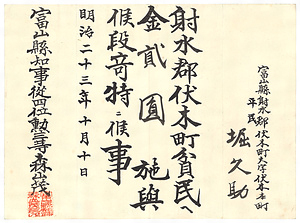 富山縣射水郡伏木町大字伏木本町
平民
堀久助
射水郡伏木町貧民ヘ
金貳圓施與
候段奇特ニ候事
明治二十三年十月十日
富山縣知事從四位勳三等森山茂